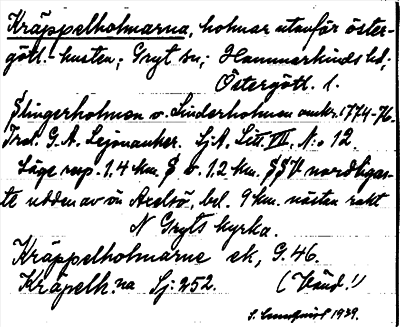 Kräppelholmarna, holmar utanför öster-
gött.-kusten; Gryt sn; Hammarkinds hd;
Östergötl. l.
Slingerholmen o. Linderholmen omkr. 1774-76.
Trol. G. A. Lejonanker. SjA, Litt. VII. N:o 12.
Läge resp. 1.4 km. S o. 1.2 km. SSV nordligas-
te udden av ön Axelsö, bel. 9 km. nästan rakt
N Gryts kyrka.
Kräppelholmarne ek, G. 46.
Kräpelh.na Sj: 252. (Vänd!)
S. 1939.